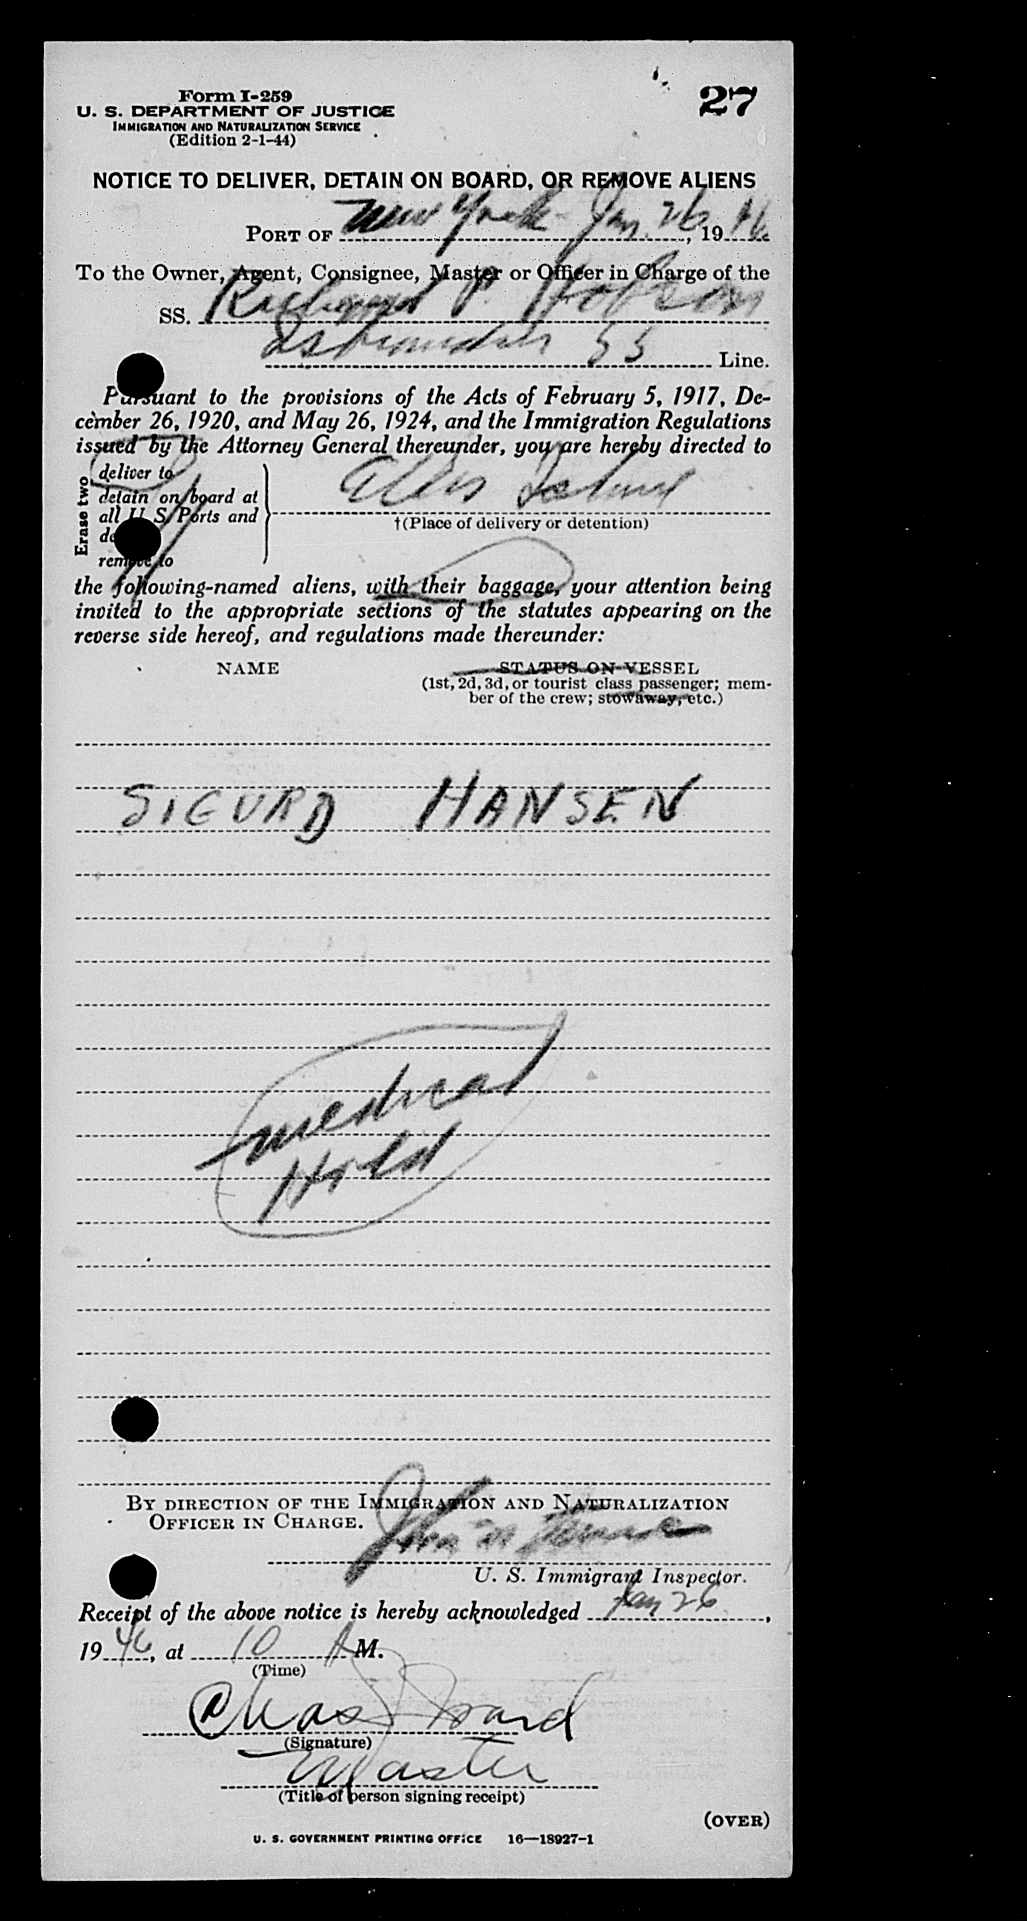 Form I-259
27
U. S. DEPARTMENT OF JUSTICE
IMMIGRATION AND NATURALIZATION SERVICE
(Edition 2-1-44)
NOTICE TO DELIVER, DETAIN ON BOARD, OR REMOVE ALIENS
PORT OF New York Jan. 26, 1946
To the Owner, Agent, Consignee, Master or Officer in Charge of the
SS. Richmond P. Hobson
Isbrandsen SS Line.
Pursuant to the provisions of the Acts of February 5, 1917, De-
cember 26, 1920, and May 26, 1924, and the Immigration Regulations
issued by the Attorney General thereunder, you are hereby directed to
Erase two
deliver to
detain on board at
all U S Ports and
remove to
Ellis Island
†(Place of delivery or detention)
the following-named aliens, with their baggage, your attention being
invited to the appropriate sections of the statutes appearing on the
reverse side hereof, and regulations made thereunder:
NAME STATUS ON VESSEL
(1st, 2d, 3d, or tourist class passenger; mem-
ber of the crew; stowaway, etc.)
SIGURD HANSEN
medical
Hold
BY DIRECTION OF THE IMMIGRATION AND NATURALIZATION
OFFICER IN CHARGE.
John
U. S. Immigrant Inspector.
Receipt of the above notice is hereby acknowledged Jan 26,
1946, at 10 A M.
(Time)
Chas Ward
(Signature)
Master
(Title of person signing receipt)
(OVER)
U. S. GOVERNMENT PRINTING OFFICE 16—18927-1